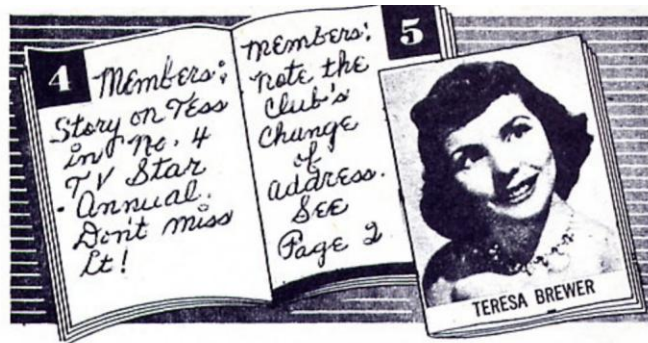 4 Members:
Story on Tess
in No. 4
TV Star
Annual.
Don't miss
It!
5
Members:
note the
Club's
Change
of
address.
See
Page 2
TERESA BREWER